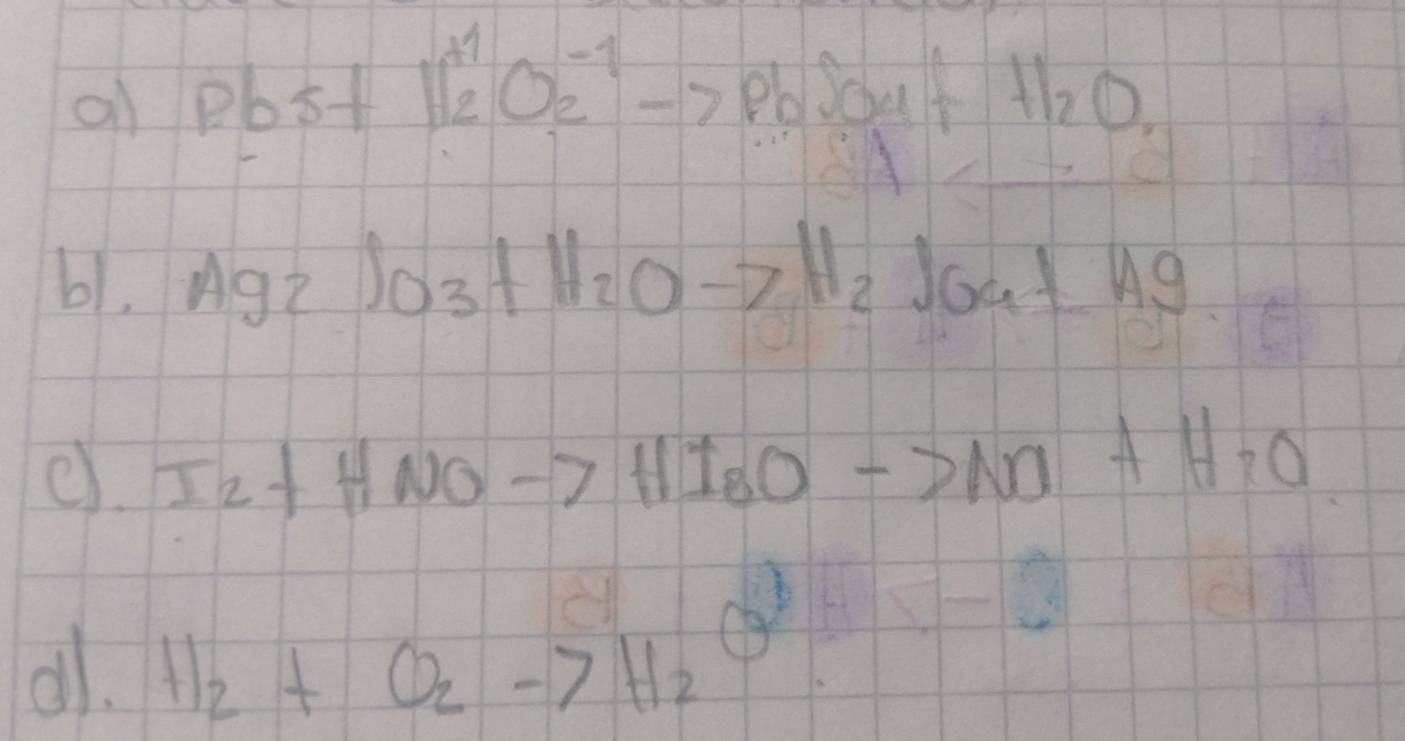 a) Pbs + H₂⁺¹O₂⁻¹ -> PbSO4 + H₂O.
b). Ag2 SO3 + H₂O -> H₂ SO4 + Ag.
c). I₂ + HNO -> HI₈O -> NO + H₂O.
d). H₂ + O₂ -> H₂O.